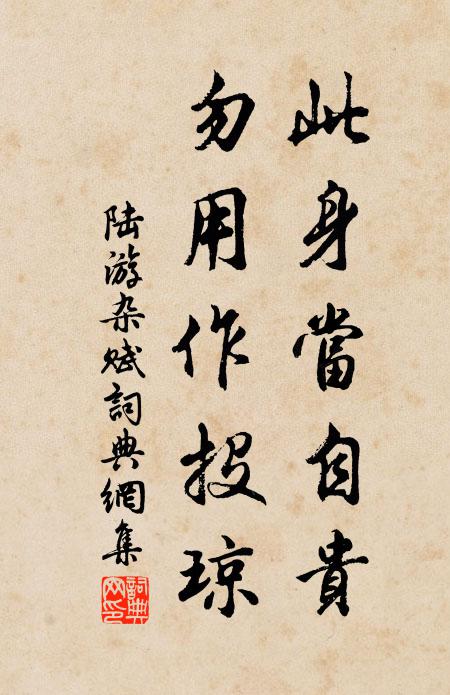 此身當自貴
勿用作投琼
陆游杂赋詞典網集
詞典网印